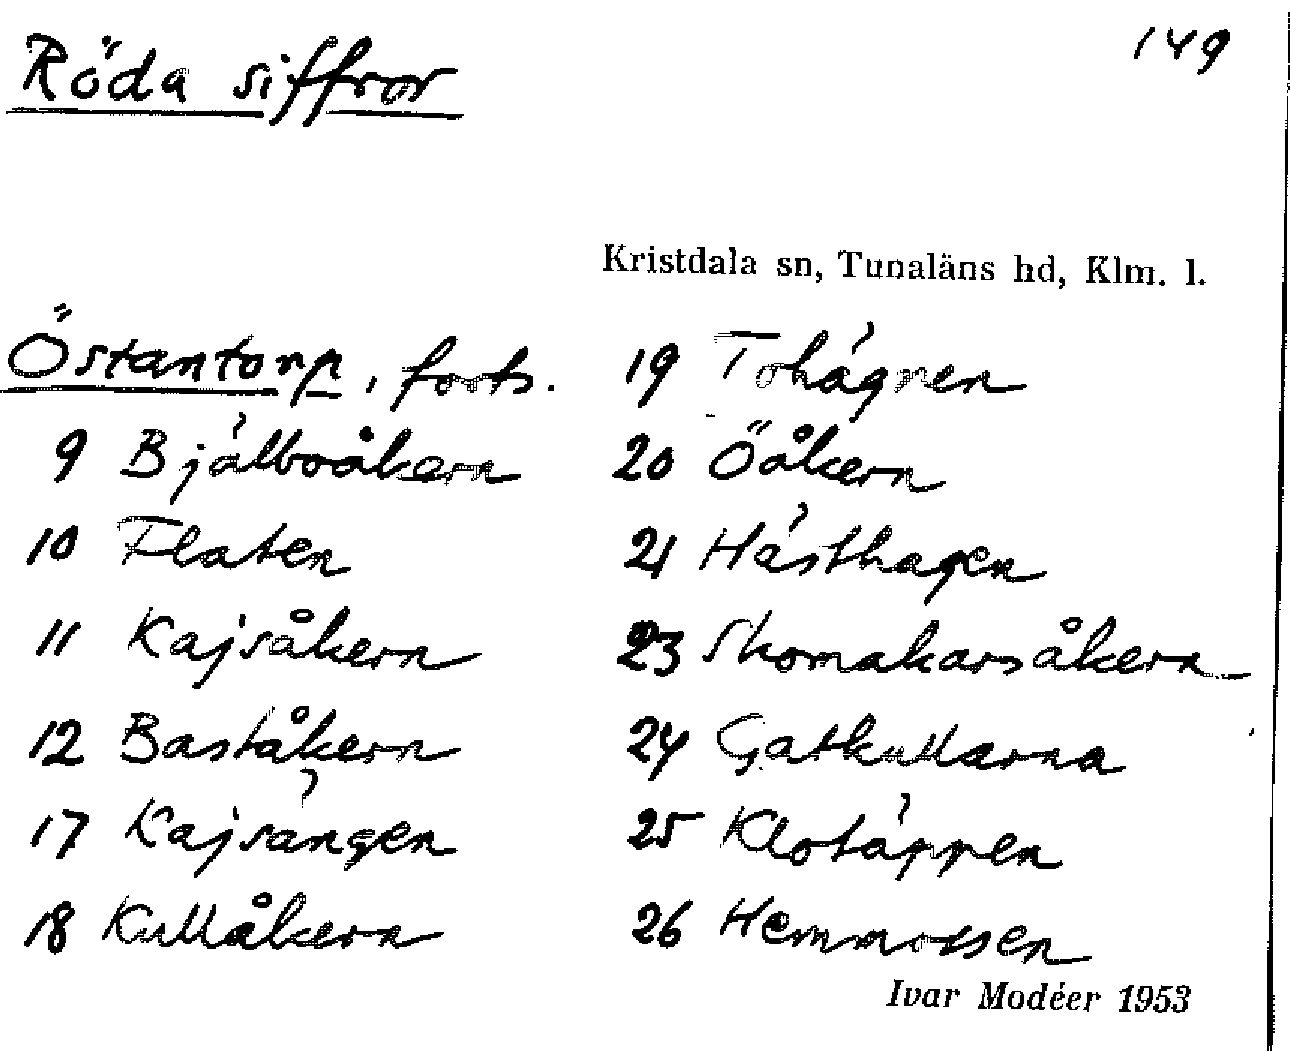 149
Röda siffror
Kristdala sn, Tunaläns hd, Klm. l.
Östantorp, forts.
9 Bjälboåkern
10 Flaten
11 Kajsåkern
12 Baståkern
17 Kajsängen
18 Kullåkern
19
20 Öåkern
21 Hästhagen
23 Skomakarsåkern
24 Gatkullarna
25 Klotäppen
26 Hemmossen
Ivar Modéer 1953